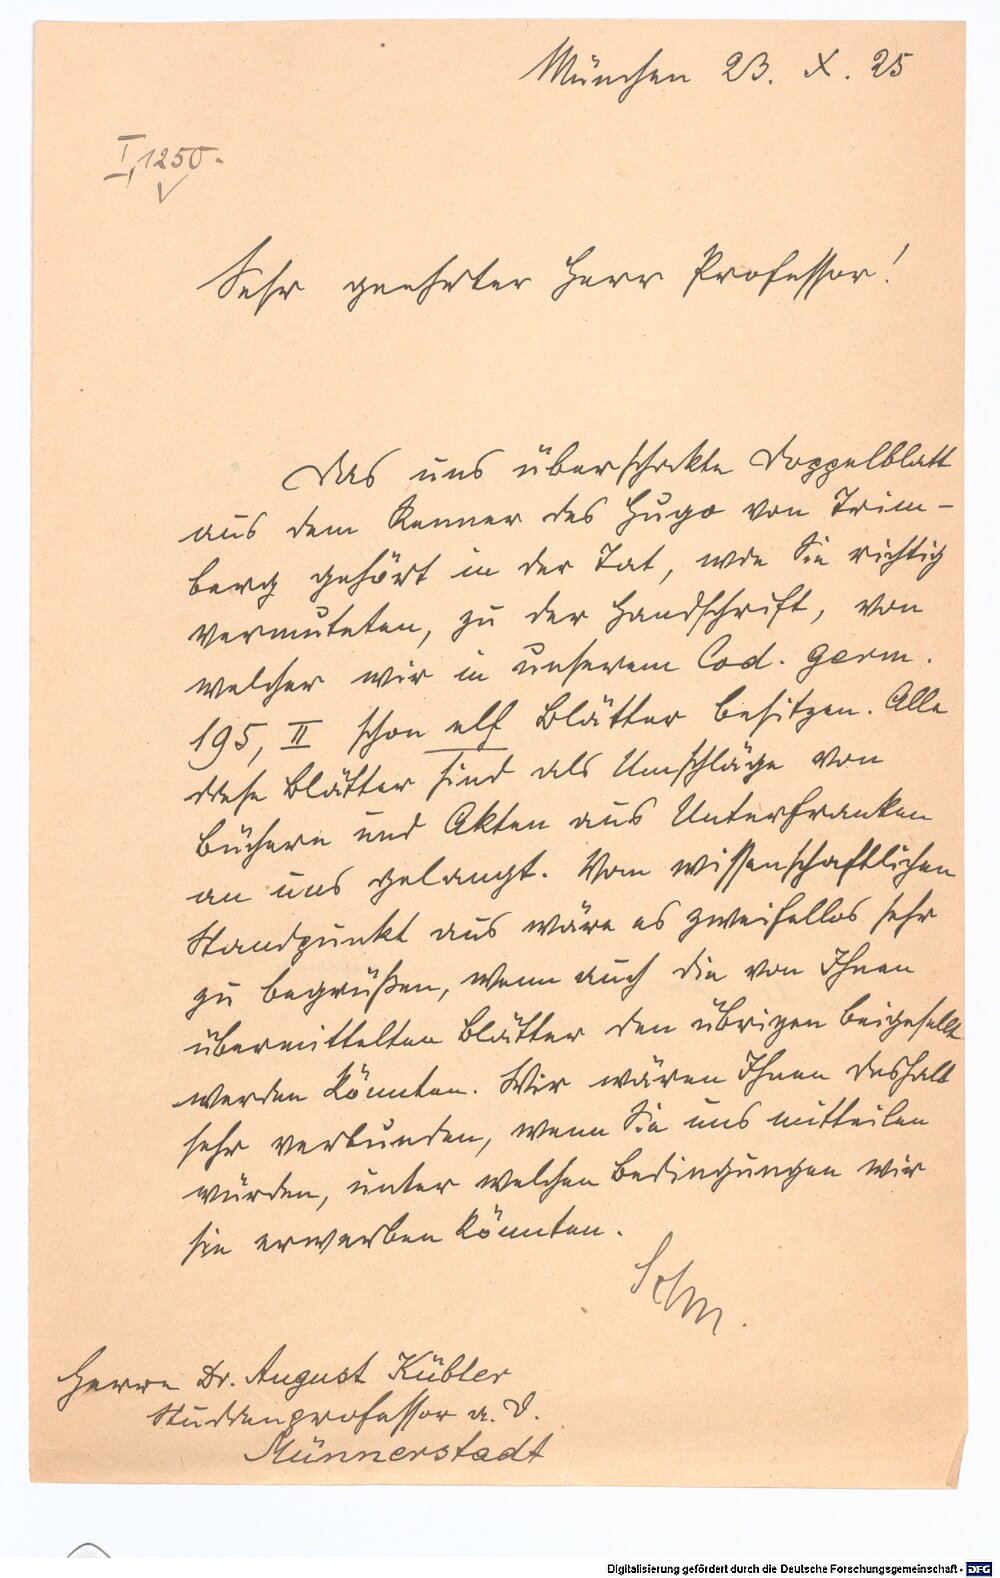 München 23. X. 25
I, 1250.
Sehr geehrter Herr Professor!
Das uns überschickte Doppelblatt
aus dem Renner des Hugo von Trim-
berg gehört in der Tat, wie Sie richtig
vermuteten, zu der Handschrift, von
welcher wir in unserem Cod. germ.
195, II schon elf Blätter besitzen. Alle
diese Blätter sind als Umschläge von
Büchern und Akten aus Unterfranken
an uns gelangt. Vom wissenschaftlichen
Standpunkt aus wäre es zweifellos sehr
zu begrüßen, wenn auch die von Ihnen
übermittelten Blätter den übrigen beigesellt
werden könnten. Wir wären Ihnen deshalb
sehr verbunden, wenn Sie uns mitteilen
würden, unter welchen Bedingungen wir
sie erwerben könnten.
Herrn Dr. August Kübler
Studienprofessor a. D.
Münnerstadt
Digitalisierung gefördert durch die Deutsche Forschungsgemeinschaft - DFG